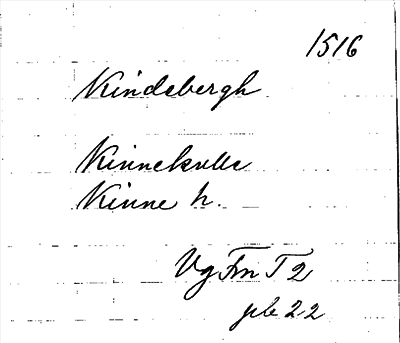 1516
Kindebergh
Kinnekulle
Kinne h.
Vg Fm T 2
pb 22